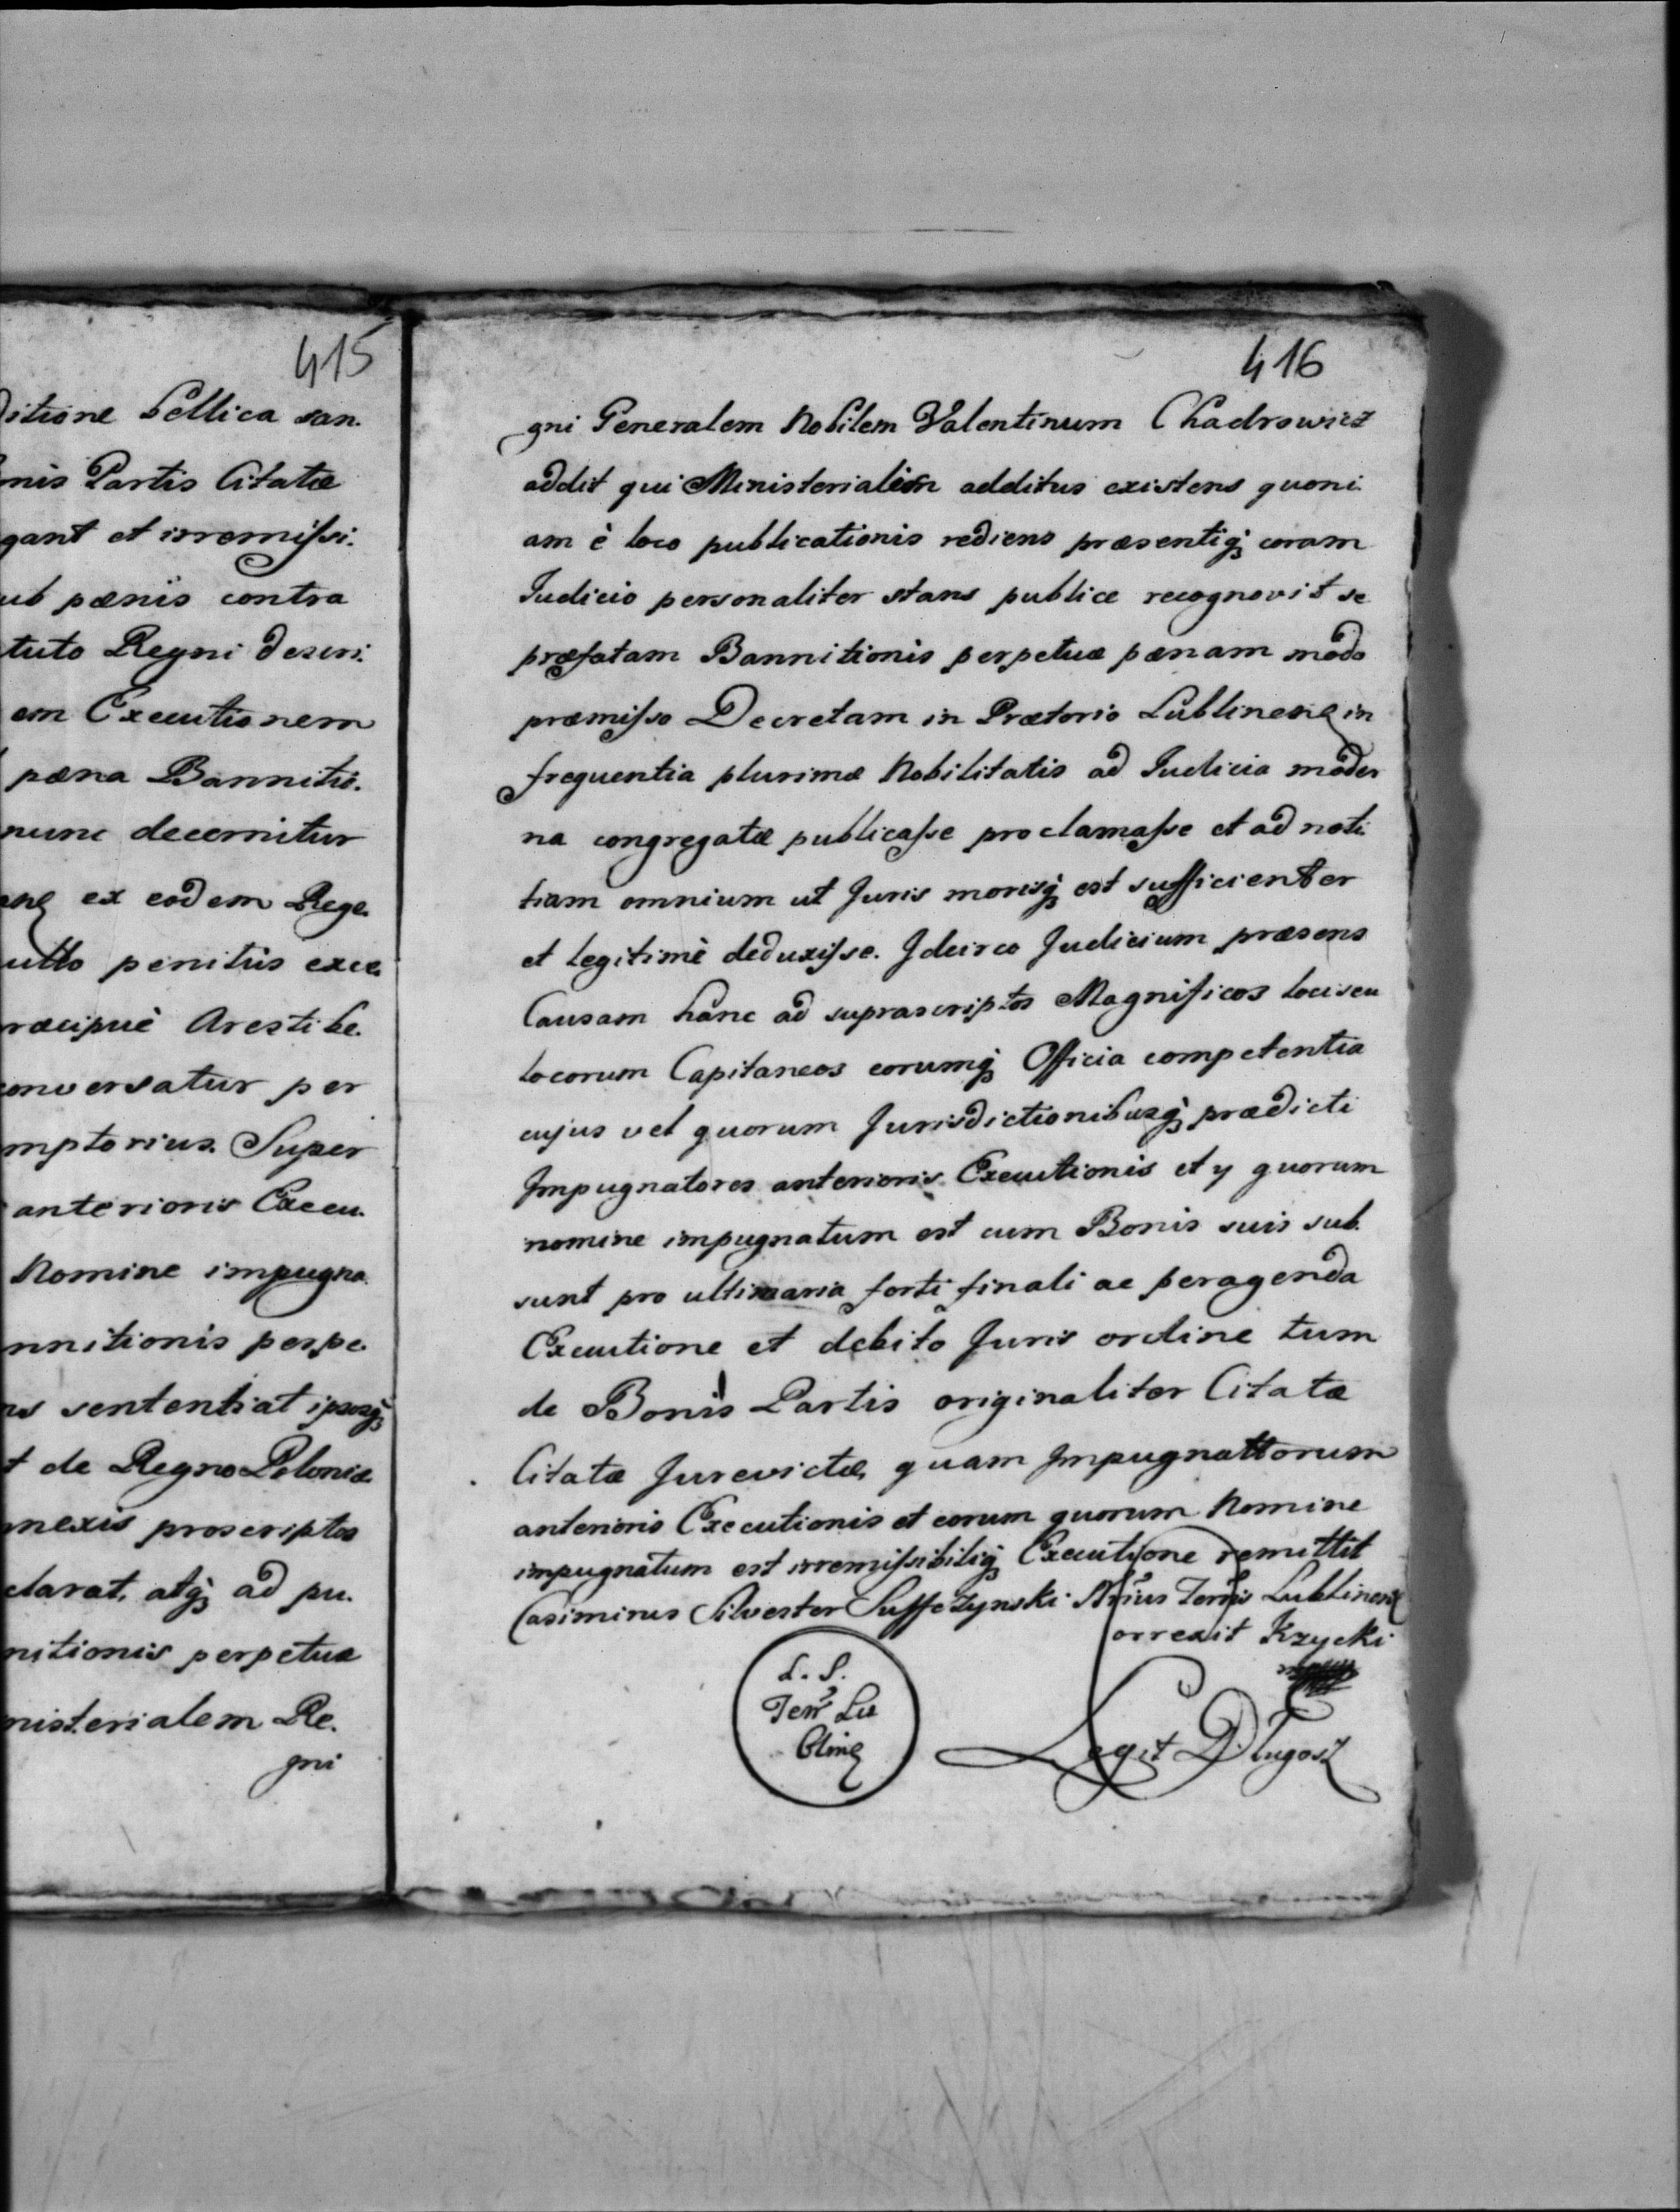 415
ditione bellica san.
nis Partis Citatæ
gant et irremissi.
ub pænis contra
tuto Regni descri.
em Executionem
pæna Bannitio.
nunc decernitur
ex eodem Rege.
ullo penitùs exce.
ræcipuè Aresti be.
conversatur per
mptorius. Super
anterioris Execu.
Nomine impugna.
nnitionis perpe.
ns sententiat ipsosq;
t de Regno Poloniæ
nexis proscriptos
clarat, atq; ad pu.
nitionis perpetuæ
nisterialem Re.
gni
416
gni Generalem Nobilem Valentinum Chadrowicz
addit qui Ministerialem additus existens quoni.
am è loco publicationis rediens præsentiq; coram
Iudicio personaliter stans publice recognovit se
præfatam Bannitionis perpetuæ pænam modo
præmisso Decretam in Prætorio Lublinen in
frequentia plurimæ Nobilitatis ad Iudicia moder
na congregatæ publicasse proclamasse et ad noti
tiam omnium ut Juris morisq; est sufficienter
et legitimè deduxisse. Idcirco Judicium præsens
Causam hanc ad suprascriptos Magnificos loci seu
locorum Capitaneos eorumq; Officia competentia
cujus vel quorum Jurisdictionibusq; prædicti
Impugnatores anterioris Executionis et y quorum
nomine impugnatum est cum Bonis suis sub.
sunt pro ultimaria forti finali ac peragenda
Executione et debito Juris ordine tum
de Bonis Partis originaliter Citatæ
Citatæ Jurevictæ, quam Impugnattorum
anterioris Executionis et eorum quorum Nomine
impugnatum est irremissibiliq; Executione remittit
Casimirus Silvester Suffczynski Nrius Terris Lublinen
Correxit Krzycki
L. S.
Terr Lu
blin
Legit Długosz